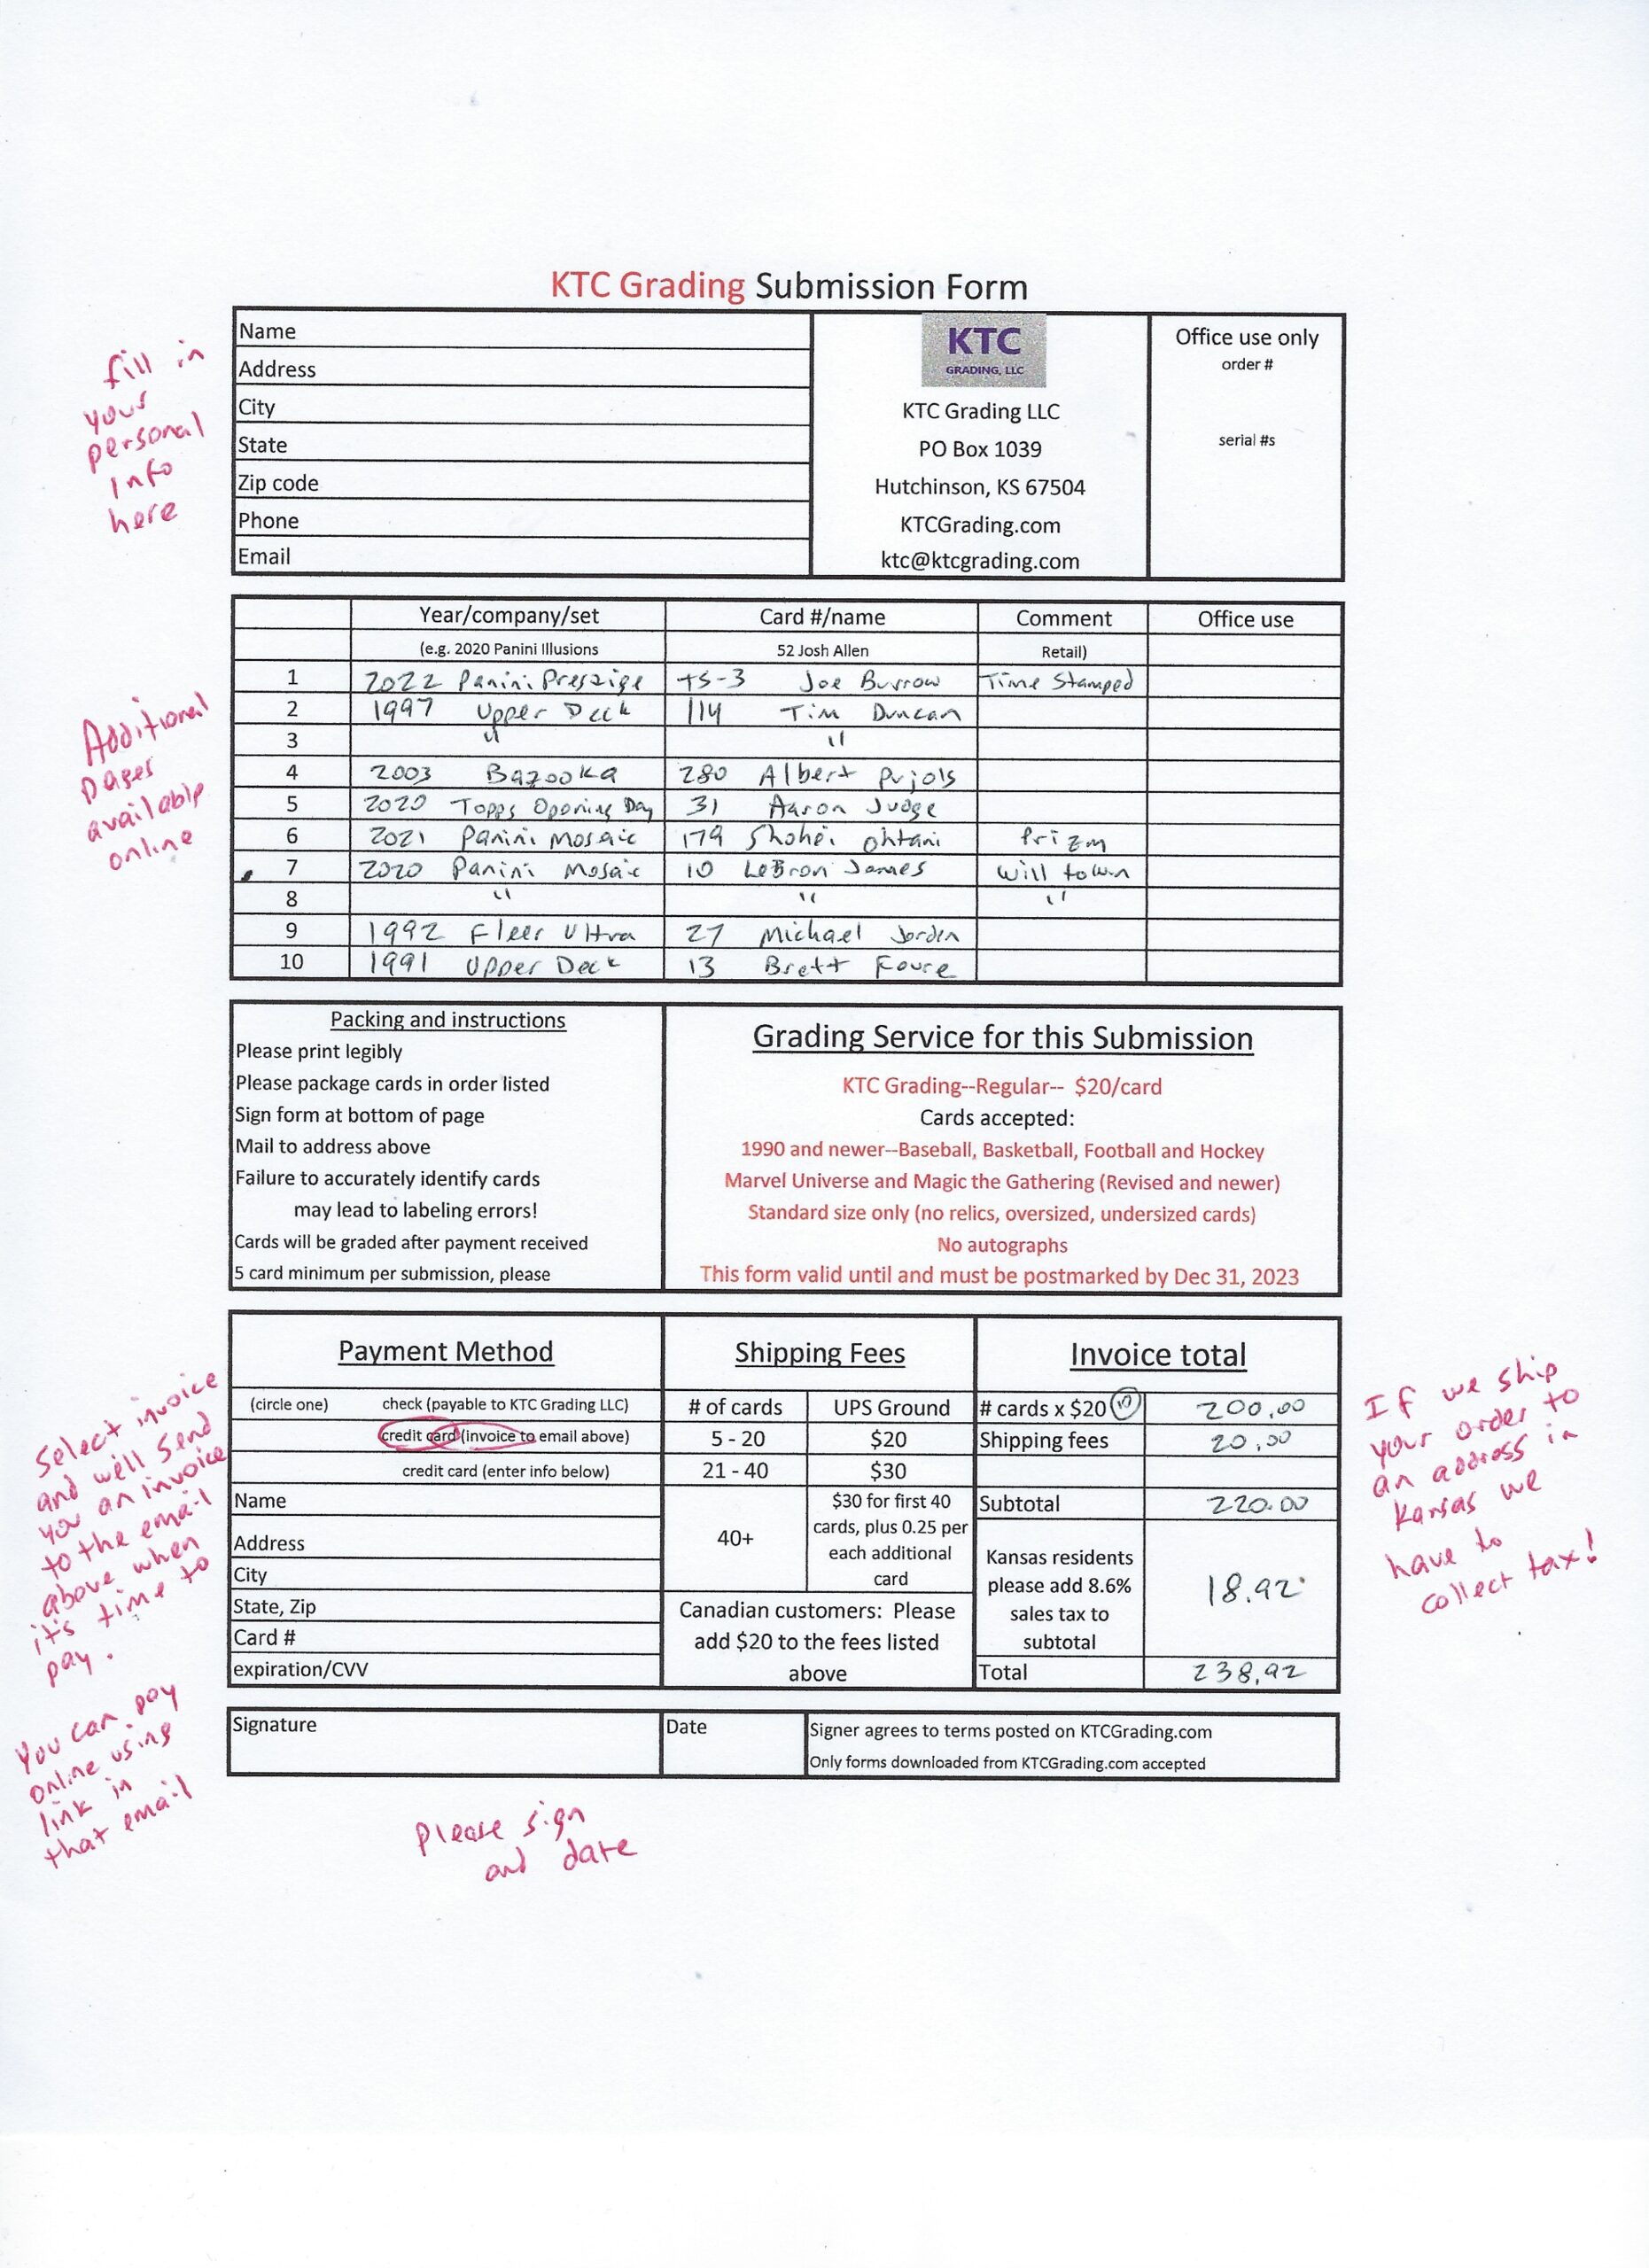 KTC Grading Submission Form
fill in
your
personal
Info
here
Name
Address
City
State
Zip code
Phone
Email
KTC
GRADING, LLC
KTC Grading LLC
PO Box 1039
Hutchinson, KS 67504
KTCGrading.com
ktc@ktcgrading.com
Office use only
order #
serial #s
Year/company/set Card #/name Comment Office use
(e.g. 2020 Panini Illusions 52 Josh Allen Retail)
1 2022 Panini Prestige TS-3 Joe Burrow Time Stamped
2 1997 Upper Deck 114 Tim Duncan
3 " "
4 2003 Bazooka 280 Albert Pujols
5 2020 Topps Opening Day 31 Aaron Judge
6 2021 Panini Mosaic 179 Shohei Ohtani Prizm
7 2020 Panini Mosaic 10 LeBron James Will to win
8 " " "
9 1992 Fleer Ultra 27 Michael Jordan
10 1991 Upper Deck 13 Brett Favre
Additional
pages
available
online
Packing and instructions
Please print legibly
Please package cards in order listed
Sign form at bottom of page
Mail to address above
Failure to accurately identify cards
may lead to labeling errors!
Cards will be graded after payment received
5 card minimum per submission, please
Grading Service for this Submission
KTC Grading--Regular-- $20/card
Cards accepted:
1990 and newer--Baseball, Basketball, Football and Hockey
Marvel Universe and Magic the Gathering (Revised and newer)
Standard size only (no relics, oversized, undersized cards)
No autographs
This form valid until and must be postmarked by Dec 31, 2023
Payment Method
(circle one) check (payable to KTC Grading LLC)
credit card (invoice to email above)
credit card (enter info below)
Name
Address
City
State, Zip
Card #
expiration/CVV
Shipping Fees
# of cards UPS Ground
5 - 20 $20
21 - 40 $30
40+
$30 for first 40
cards, plus 0.25 per
each additional
card
Canadian customers: Please
add $20 to the fees listed
above
Invoice total
# cards x $20 10 200.00
Shipping fees 20.00
Subtotal 220.00
Kansas residents
please add 8.6%
sales tax to
subtotal
18.92
Total 238.92
Select invoice
and we'll send
you an invoice
to the email
above when
it's time to
pay.
You can pay
online using
link in
that email
If we ship
your order to
an address in
Kansas we
have to
collect tax!
Signature
Date
Signer agrees to terms posted on KTCGrading.com
Only forms downloaded from KTCGrading.com accepted
please sign
and date